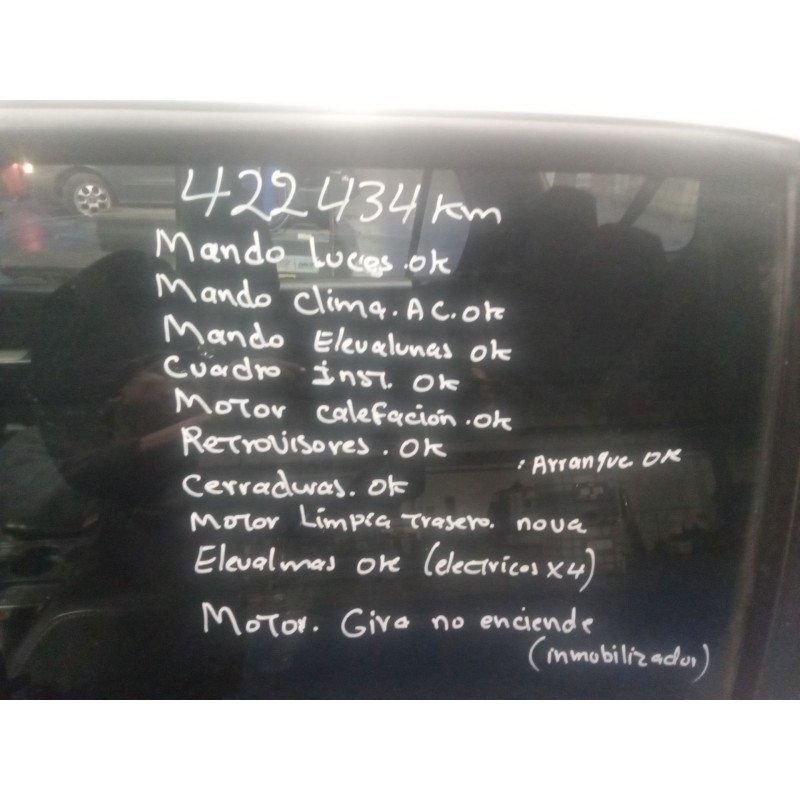 422434 km
Mando Luces.ok
Mando Clima.AC.ok
Mando Elevalunas ok
Cuadro inst. ok
Motor calefación.ok
Retrovisores.ok
. Arranque ok
Cerraduras.ok
Motor Limpia trasero. nova
Elevalmas ok (electricos x4)
Motor. Gira no enciende
(inmobilizador)